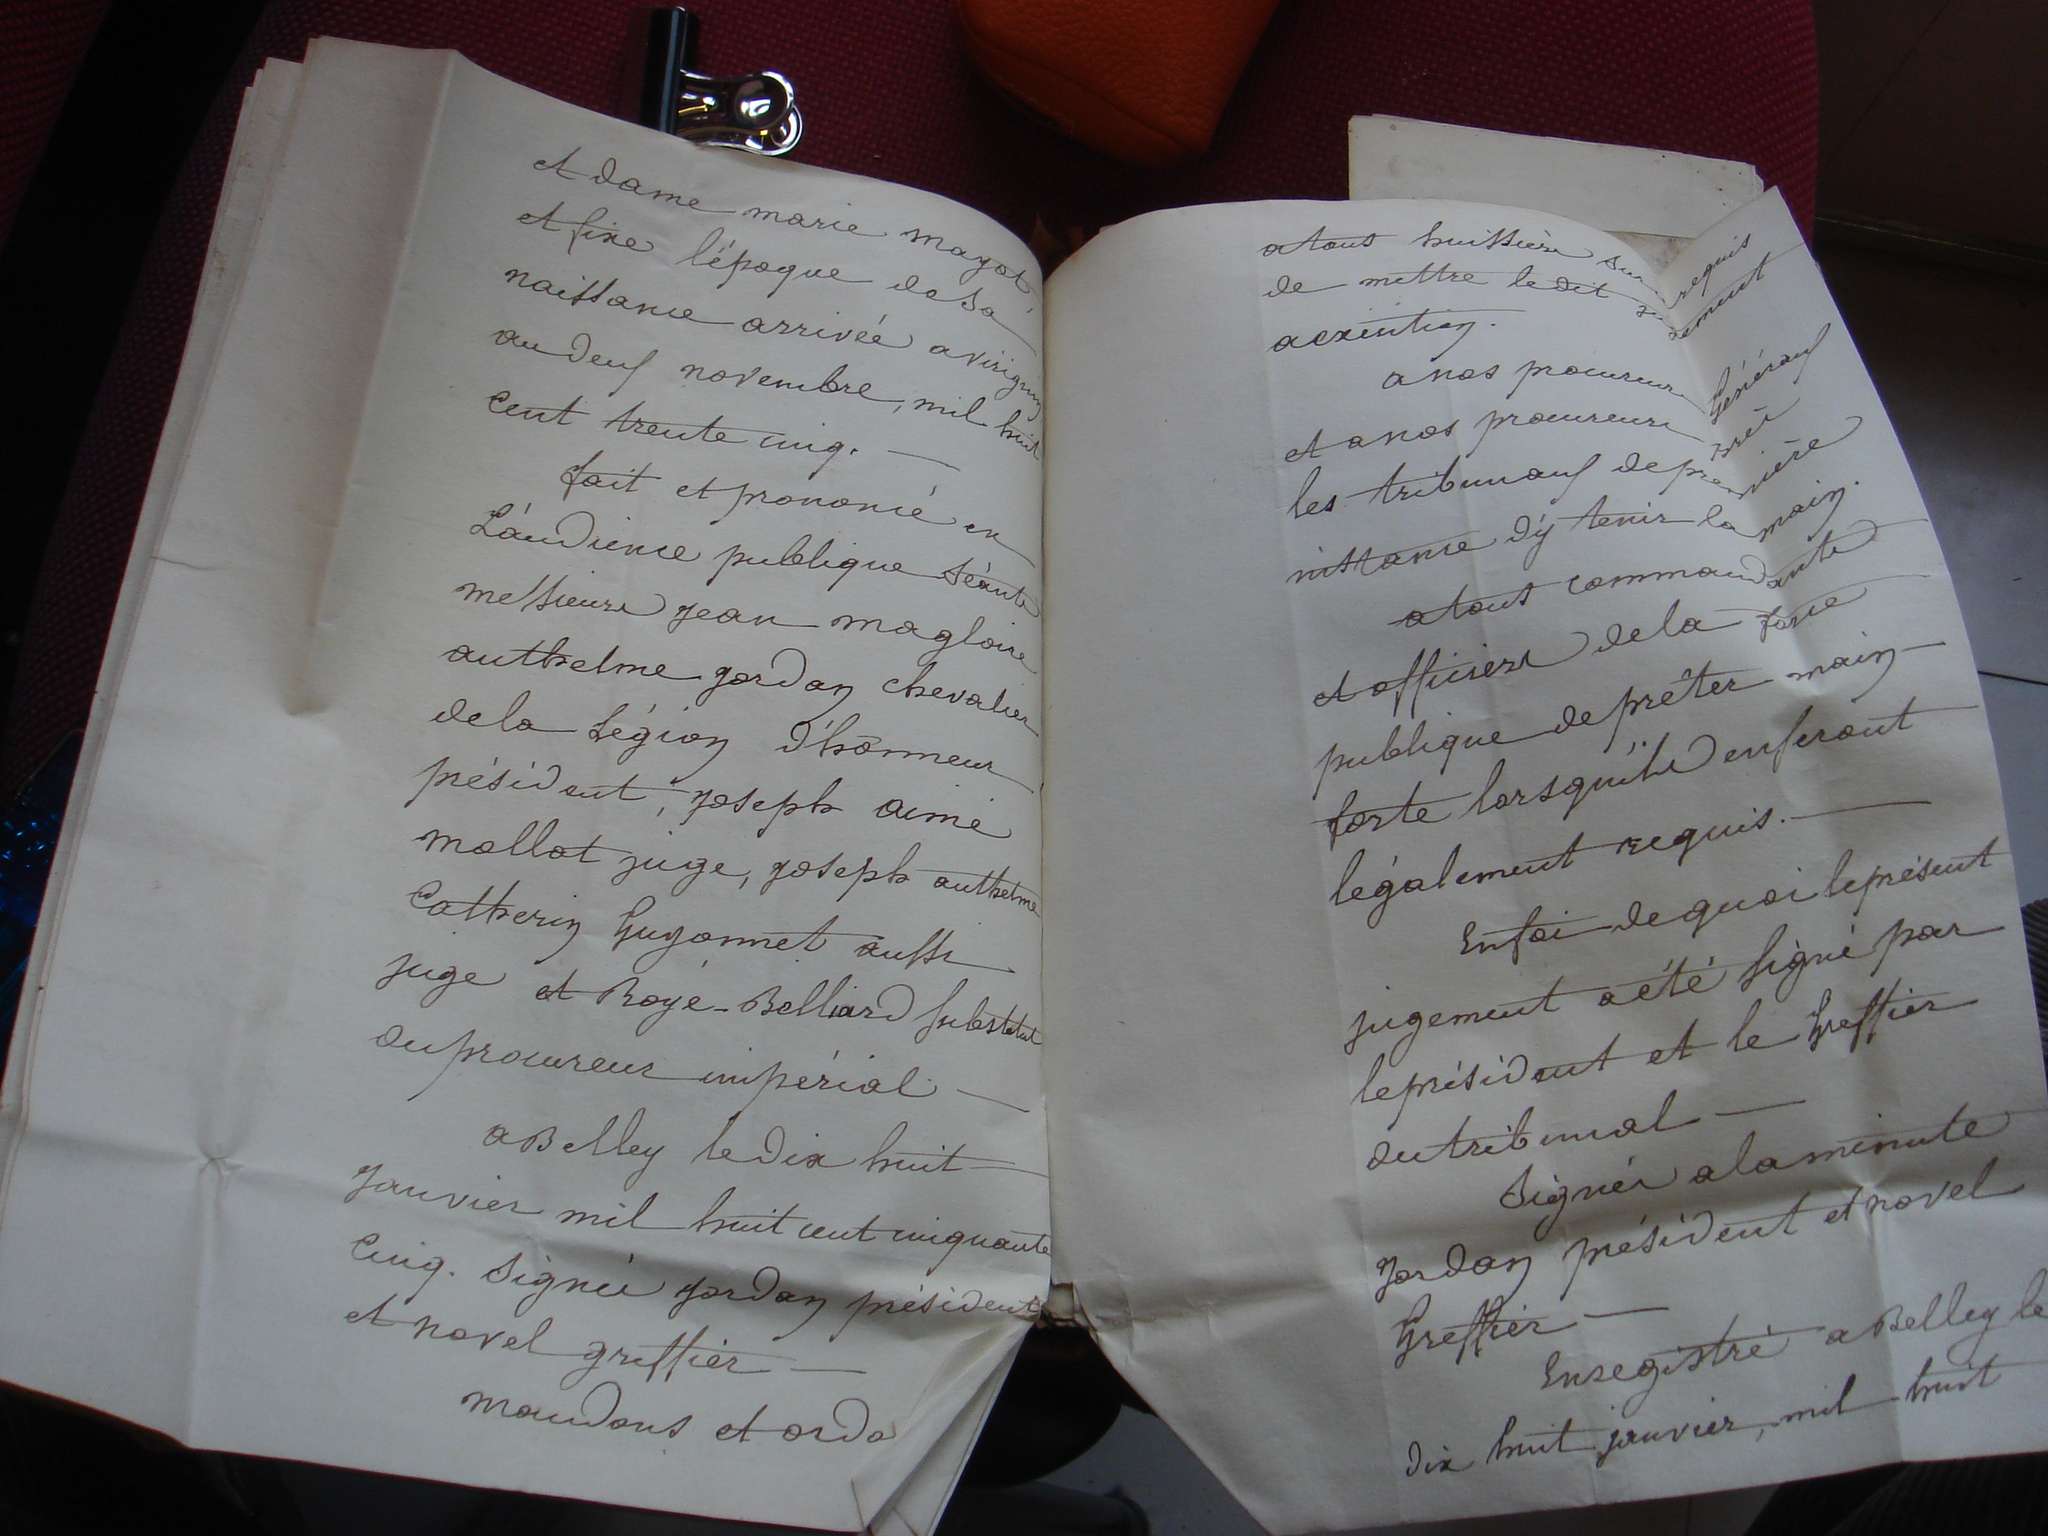 et dame marie mayot
et fixe l'époque de sa
naissance arrivée a virignin
au deux novembre, mil huit
Cent trente cinq. —
fait et prononcé en
L'audience publique séante
messieurs Jean magloire
anthelme jordan chevalier
de la Légion d'honneur
président, joseph aimé
mollot juge, joseph anthelme
Catherin Guyonnet aussi
juge et Royé-Belliard substitut
du procureur impérial —
a Belley le dix huit —
Janvier mil huit cent cinquante
Cinq. Signés jordan président
et novel greffier —
mandons et ordo
a tous huissiers sur requis
de mettre le dit jugement
a exécution.
a nos procureurs Généraux
et a nos procureurs près
les tribunaux de première
instance d'y tenir la main.
a tous commandants
et officiers de la force
publique de prêter main —
forte lorsqu'ils en seront
légalement requis. —
En foi de quoi le présent
jugement a été signé par
le président et le Greffier
du tribunal —
Signés a la minute
Jordan président et novel
Greffier —
Enregistré a Belley le
dix huit janvier, mil huit